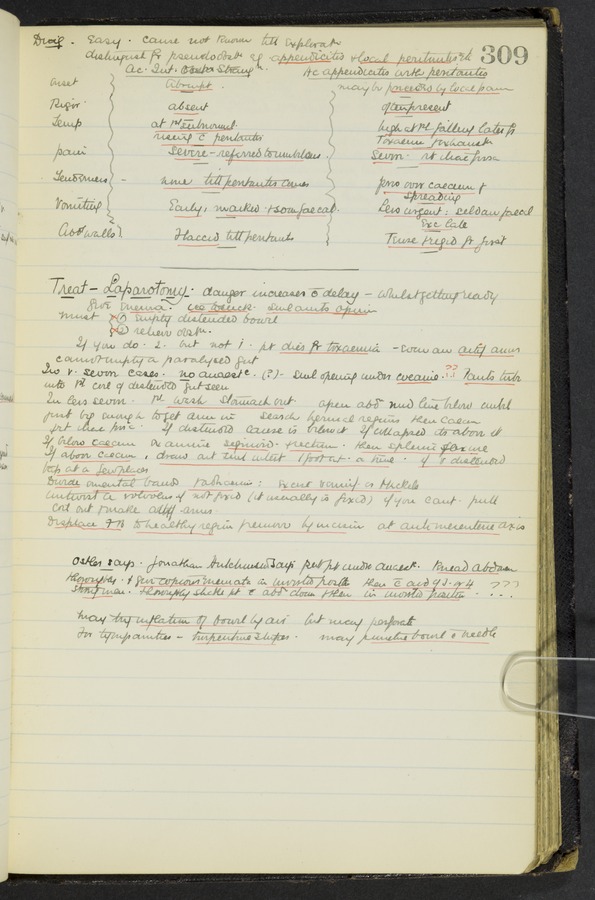 309
Diag. Easy. Cause not known till explorat
distinguish fr pseudo obst eg appendicitis & local peritonitis etc
Ac. Int. Obstr Ac appendicitis with peritonitis
onset Abrupt. may be preceded by local pain
Rigor absent often present
Temp at 1st subnormal high at 1st falling later fr
rising c peritonitis Toxaemia
pain Severe - referred to umbilicus Severe. rt iliac fossa
Tenderness - none till peritonitis comes over caecum &
spreading
Vomiting Early, marked & soon faecal. Less urgent: seldom faecal
Exc late
Abd walls Flaccid till peritonitis Tense & rigid fr first
Treat - Laparotomy. danger increases c delay - whilst getting ready
give enema.
must (1) Empty distended bowel
(2) relieve obstr.
If you do 2 but not 1. pt dies fr toxaemia - even an artif anus
cannot empty a paralysed gut
In v. severe cases. no anaesth. (?) - small opening under cocaine. ?? Pauls tube
into 1st coil of distended gut seen
In less severe. 1st wash stomach out open abd mid line below umbil
just big enough to get arm in Search hernial regions then caecum
If distended cause is below it If collapsed its above it
If below caecum examine sigmoid & rectum. then splenic flexure
If above caecum, draw out small intest 1 foot at a time. if v distended
tap at a few places
Divide omental band
untwist a volvulus & if not fixed (it usually is fixed) if you cant pull
coil out & make artif anus
to healthy region & remove by incision at antimesenteric axis
Osler says. Jonathan Hutchinson says put pt under anaesth. Knead abdomen
thoroughly. & give copious enemata in inverted position then c aid of 3 or 4 ???
strong men. thoroughly shake pt c abd down & then in inverted position. ...
may try inflation of bowel by air but may perforate
For tympanites - turpentine stupes. may puncture bowel c needle